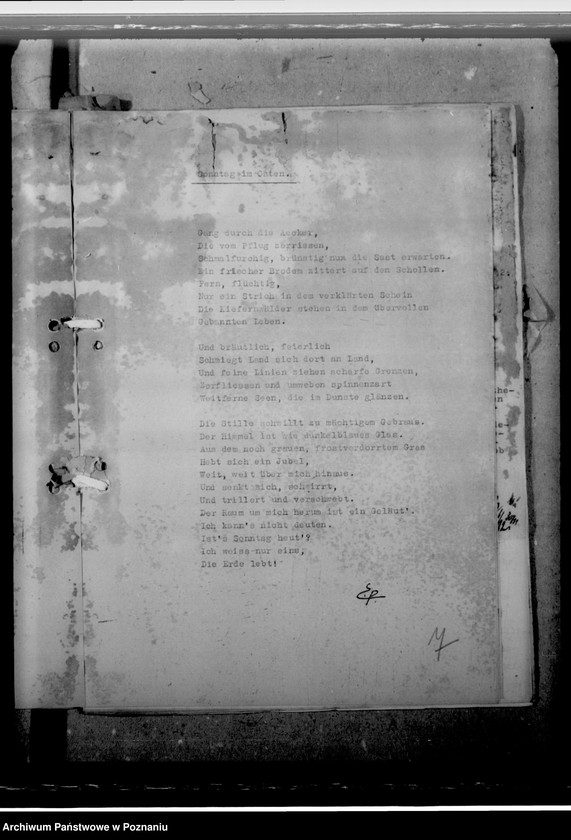 Sonntag im Osten.
Gang durch die Aecker,
Die vom Pflug zerrissen,
Schmalfurchig, brünstig nun die Saat erwarten.
Ein frischer Brodem zittert auf den Schollen.
Fern, flüchtig,
Nur ein Strich in dem verklärten Schein
Die Kiefernwälder stehen in dem übervollen
Gebannten Leben.
Und bräutlich, feierlich
Schmiegt Land sich dort an Land,
Und feine Linien ziehen scharfe Grenzen,
Zerfliessen und umweben spinnenzart
Weitferne Seen, die im Dunste glänzen.
Die Stille schwillt zu mächtigem Gebraus.
Der Himmel ist wie dunkelblaues Glas.
Aus dem noch grauen, frostverdorrtem Gras
Hebt sich ein Jubel,
Weit, weit über mich hinaus.
Und senkt sich, schwirrt,
Und trillert und verschwebt.
Der Raum um mich herum ist ein Geläut'.
Ich kann's nicht deuten.
Ist's Sonntag heut'?
Ich weiss nur eins,
Die Erde lebt!
7
Archiwum Państwowe w Poznaniu